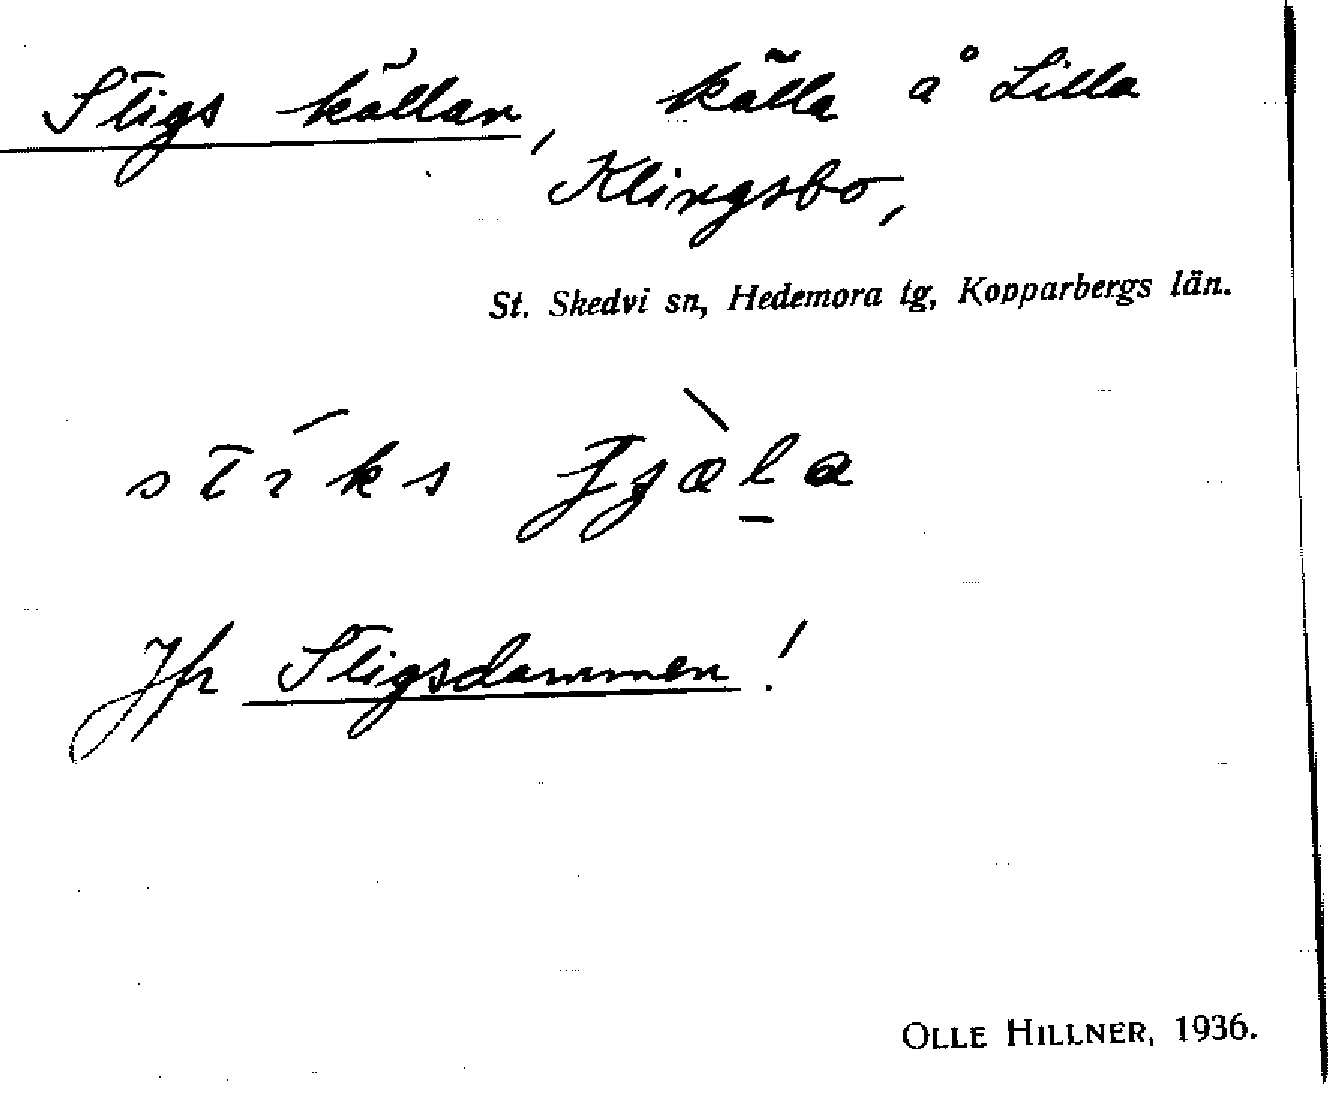 Stigs källan, källa å Lilla
Klingsbo,
St. Skedvi sn, Hedemora tg, Kopparbergs län.
Jfr Stigsdammen!
OLLE HILLNER, 1936.